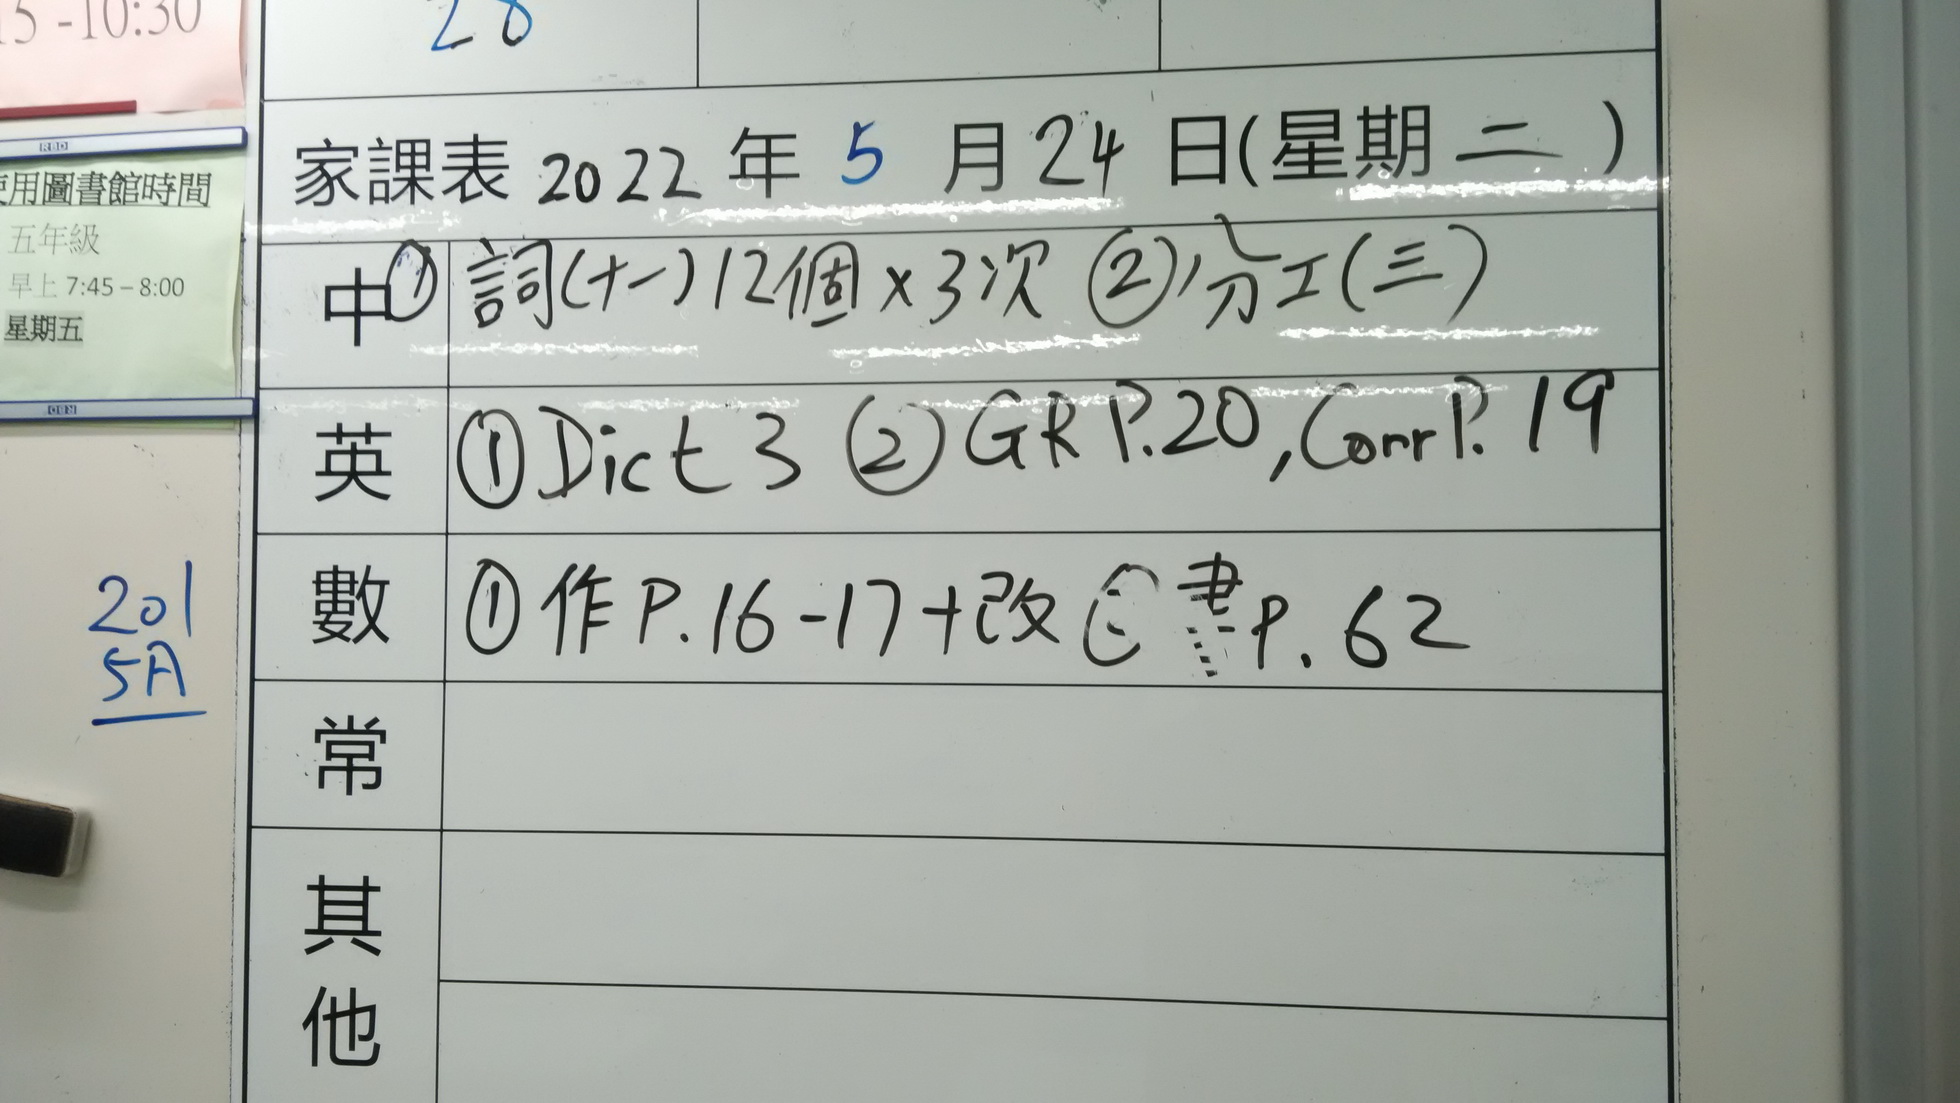 15 -10:30
28
家課表 2022 年 5 月 24 日(星期 二 )
RBD
使用圖書館時間
五年級
早上 7:45 – 8:00
星期五
RBD
中 ① 詞(十一) 12個 × 3次 ② 分工(三)
英 ① Dict 3 ② GR P.20, Corr P. 19
數 ① 作 P.16-17+改 書 P. 62
201
5A
常
其
他